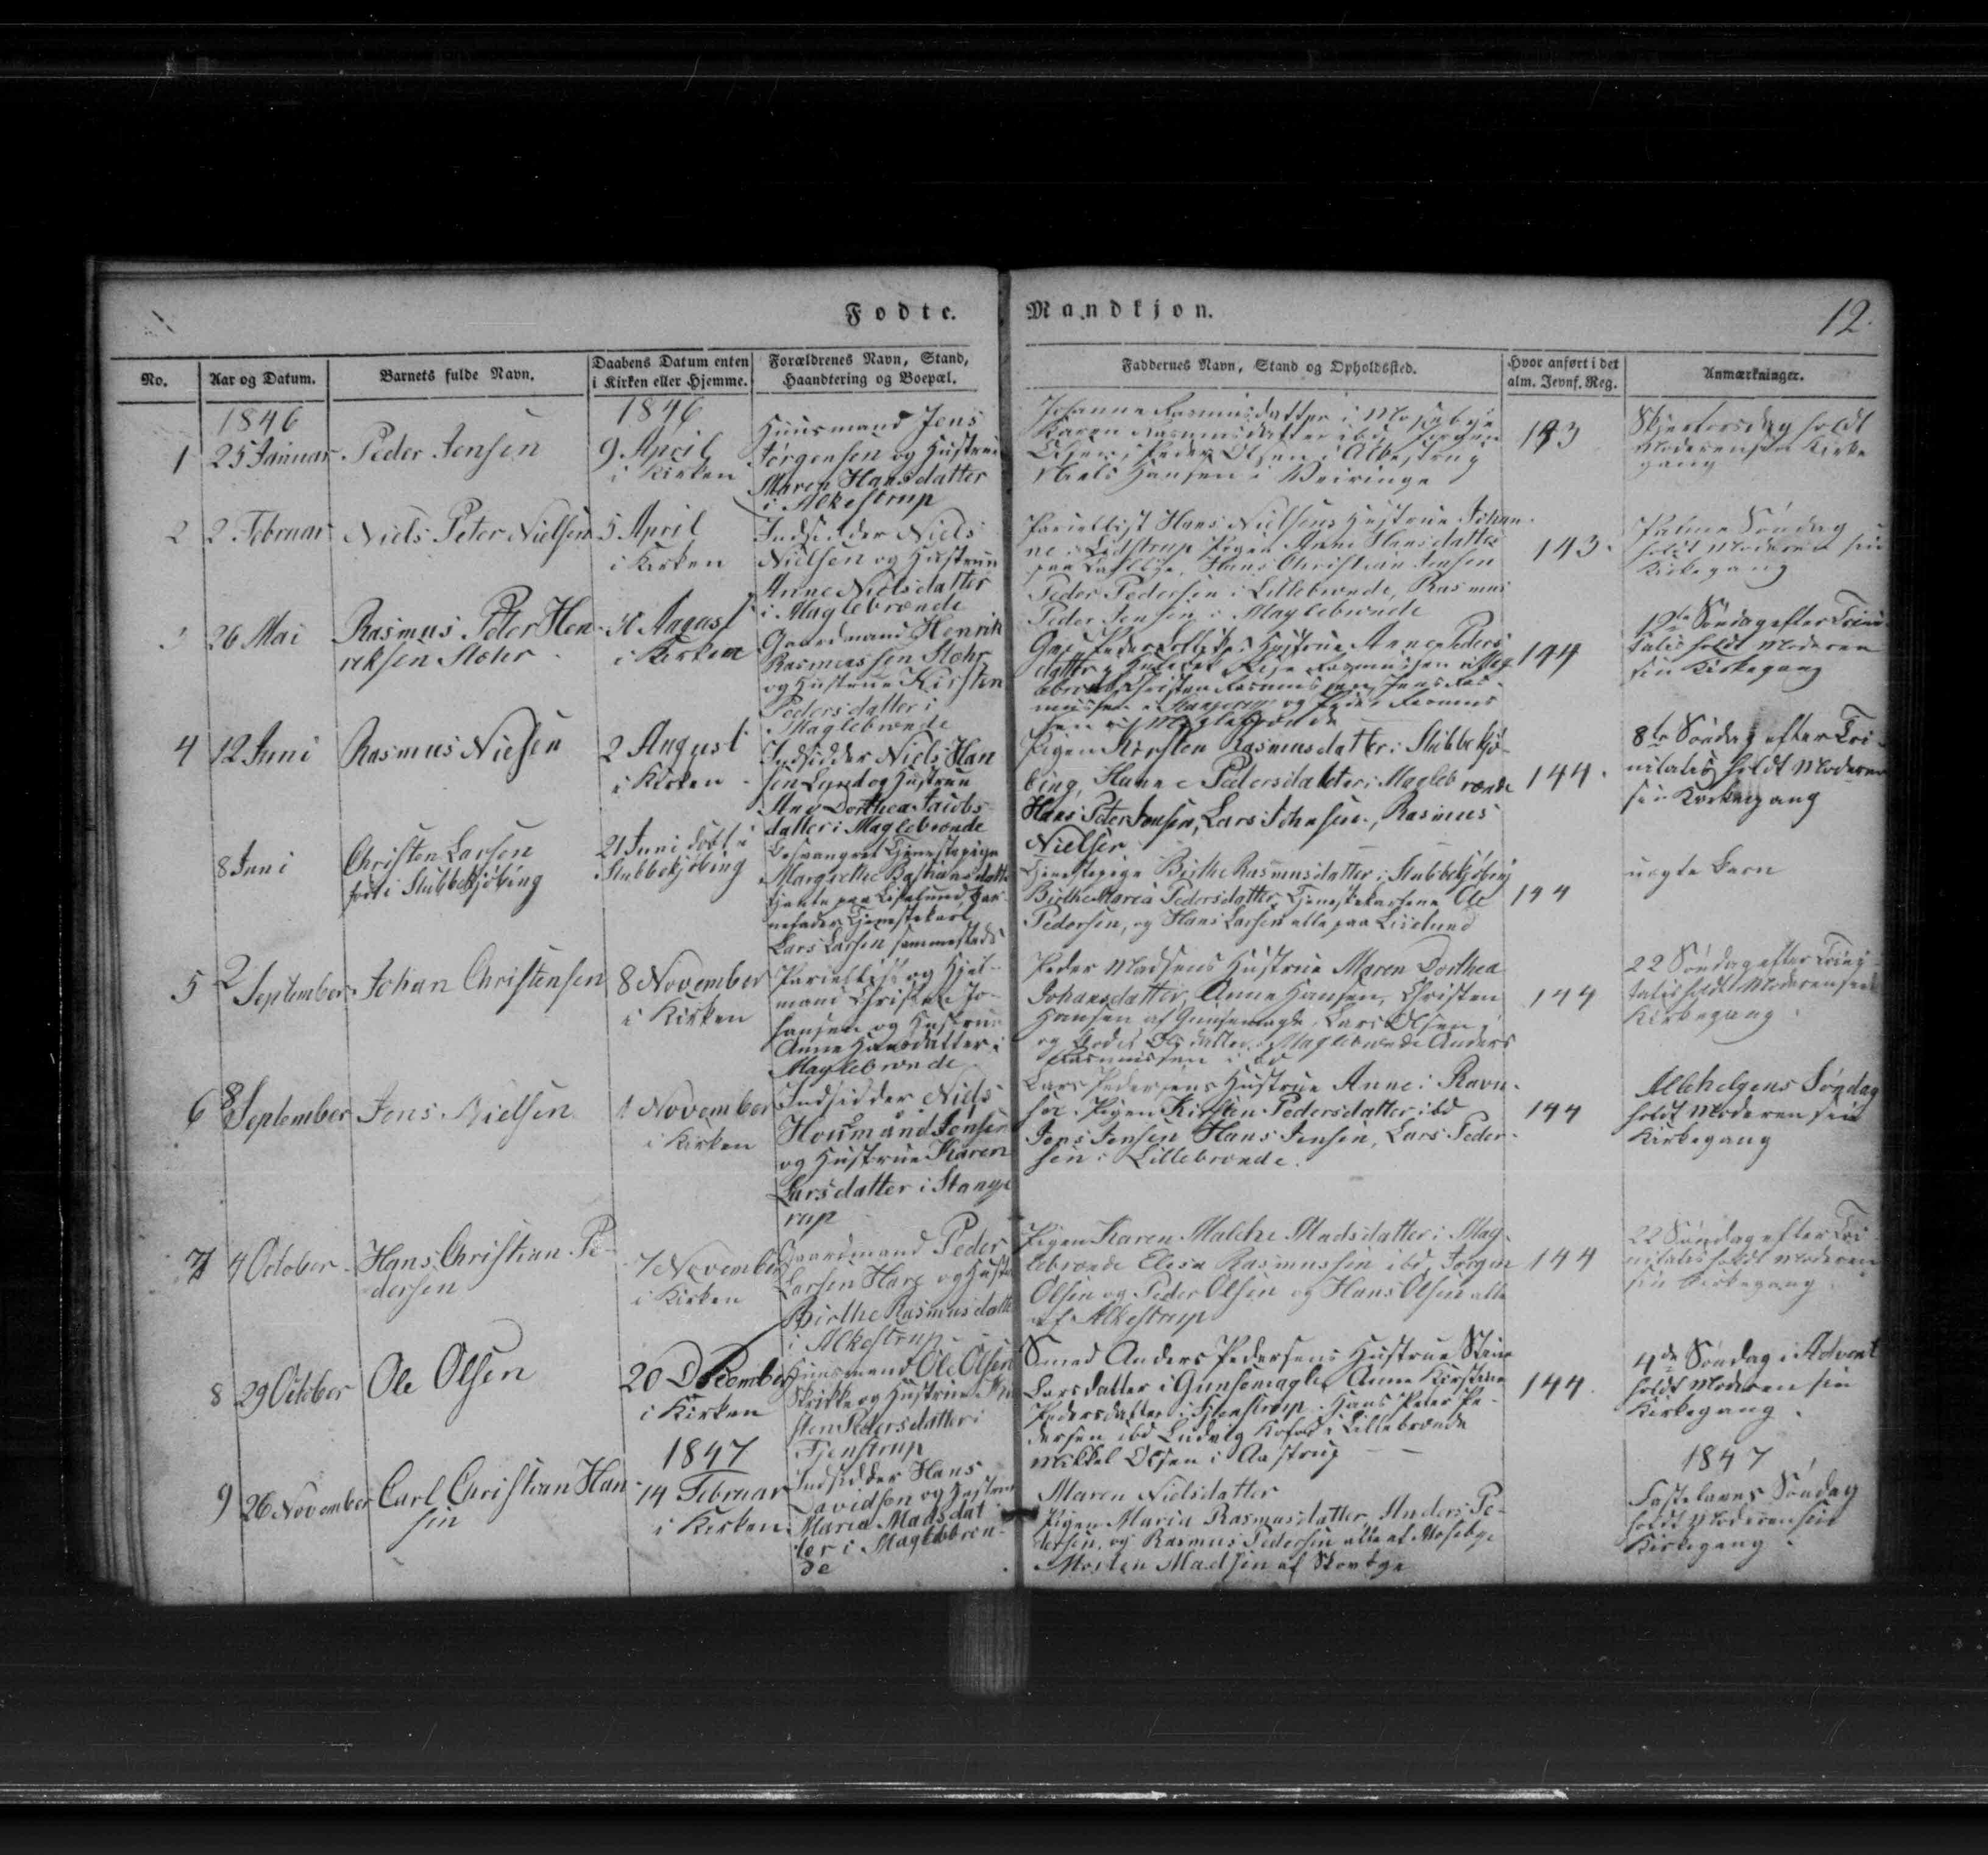 Fodte.
Mandkjon.
12.
No.
Aar og Datum.
Barnets fulde Navn.
Daabens Datum enten
i Kirken eller Hjemme.
Forældrenes Navn, Stand,
Haandtering og Boepæl.
Faddernes Navn, Stand og Opholdssted.
Hvor anført i det
alm. Jevnf. Reg.
Anmærkninger.
1846
1846
1
25 Januar
Peder Jensen
9 April
i Kirken
Huusmand Jens
Jørgensen og Hustrue
Maren Hansdatter
i Alkestrup
Johanne Rasmusdatter i Mosebye
Karen Rasmusdatter ibid
Peder Olsen i Alkestrup
Niels Hansen i Veiringe
143
Skjærtorsdag holdt
Moderen sin Kirke
gang
2
2 Februar
Niels Peter Nielsen
5 April
i Kirken
Indsidder Niels
Nielsen og Hustrue
Anne Nielsdatter
i Maglebrænde
Parcellist Hans Nielsens Hustrue Johan-
ne i Pigen Anne Hansdatter
paa Hans Christian Jensen
Peder Pedersen i Lillebrænde, Rasmus
Peder Jensen i Maglebrænde
143.
Palme Søndag
holdt Moderen sin
Kirkegang
3
26 Mai
Rasmus Peter Hen-
riksen Stohr
August
i Kirken
Gaardmand Henrik
Rasmussen Stohr
og Hustrue Kirsten
Pedersdatter i
Maglebrænde
Hustrue Anne Peders
datter
144
12te Søndag efter Trini-
tatis holdt Moderen
sin Kirkegang
4
12 Juni
Rasmus Nielsen
2 August
i Kirken
Indsidder Niels Han
sen Lynd og Hustrue
Ane Dorthea Jacobs
datter i Maglebrænde
Pigen Kirsten Rasmusdatter i Stubbekjø-
bing, Hanne Pedersdatter i Maglebrænde
Hans Peter Jensen, Lars Johnsen, Rasmus
Nielsen
144.
8de Søndag efter Tri-
nitatis holdt Moderen
sin Kirkegang
8 Juni
Christen Larsen
født i Stubbekjøbing
21 Juni døbt i
Stubbekjøbing
Besvangret Tjenestepige
Margrethe Bastiansdatter
tjente paa Liselund, Bar-
nefader Tjenestekarl
Lars Larsen sammesteds
Tjenestepige Birthe Rasmusdatter i Stubbekjøbing
Birthe Maria Pedersdatter, Tjenestekarlene Ole
Pedersen, og Hans Larsen alle paa Liselund
144
uægte Barn
5
2 September
Johan Christensen
8 November
i Kirken
Parcellist og Hjul-
mand Christen Jo-
hansen og Hustrue
Anne Hansdatter i
Maglebrænde
Peder Madsens Hustrue Maren Dorthea
Johansdatter, Anne Hansen, Christen
Hansen af Gunsemagle, Lars Olsen
og Maglebrænde Anders
Rasmussen ibd
144
22 Søndag efter Trini-
tatis holdt Moderen sin
Kirkegang.
6
8 September
Jens Nielsen
1 November
i Kirken
Indsidder Niels
Houmand Jensen
og Hustrue Karen
Larsdatter i Stange
rup
Lars Pedersens Hustrue Anne i Ravn-
se. Pigen Kirsten Pedersdatter ibd
Jens Jensen Hans Jensen, Lars Peder-
sen i Lillebrænde.
144
Allehelgens Søndag
holdt Moderen sin
Kirkegang
7
4 October
Hans Christian Pe-
dersen
7 November
i Kirken
Gaardmand Peder
Larsen Harz og Hustr
Birthe Rasmusdatter
i Alkestrup
Pigen Karen Malche Madsdatter i Mag-
lebrænde Elesa Rasmussen ibd, Jørgen
Olsen og Peder Olsen og Hans Olsen alle
af Alkestrup
144
22 Søndag efter Tri-
nitatis holdt Moderen
sin Kirkegang.
8
29 October
Ole Olsen
20 December
i Kirken
Huusmand Ole Olsen
Skrikke og Hustrue Kir
sten Pedersdatter i
Tjenstrup
Smed Anders Pedersens Hustrue Stine
Larsdatter i Gunsemagle, Anne Kirstine
Pedersdatter i Tjenstrup. Hans Peter Pe-
dersen ibd Ludvig Kofod i Lillebrænde
Mikkel Olsen i Aastrup
144.
4de Søndag i Advent
holdt Moderen sin
Kirkegang.
1847
1847
9
26 November
Carl Christian Han-
sen
14 Februar
i Kirken.
Indsidder Hans
Davidsen og Hustrue
Maria Madsdat
ter i Maglebræn-
de
Maren Nielsdatter
Pigen Maria Rasmusdatter, Anders Pe-
dersen, og Rasmus Pedersen alle af Mosebye
Morten Madsen af Skovbye
Fastelavns Søndag
holdt Moderen sin
Kirkegang.